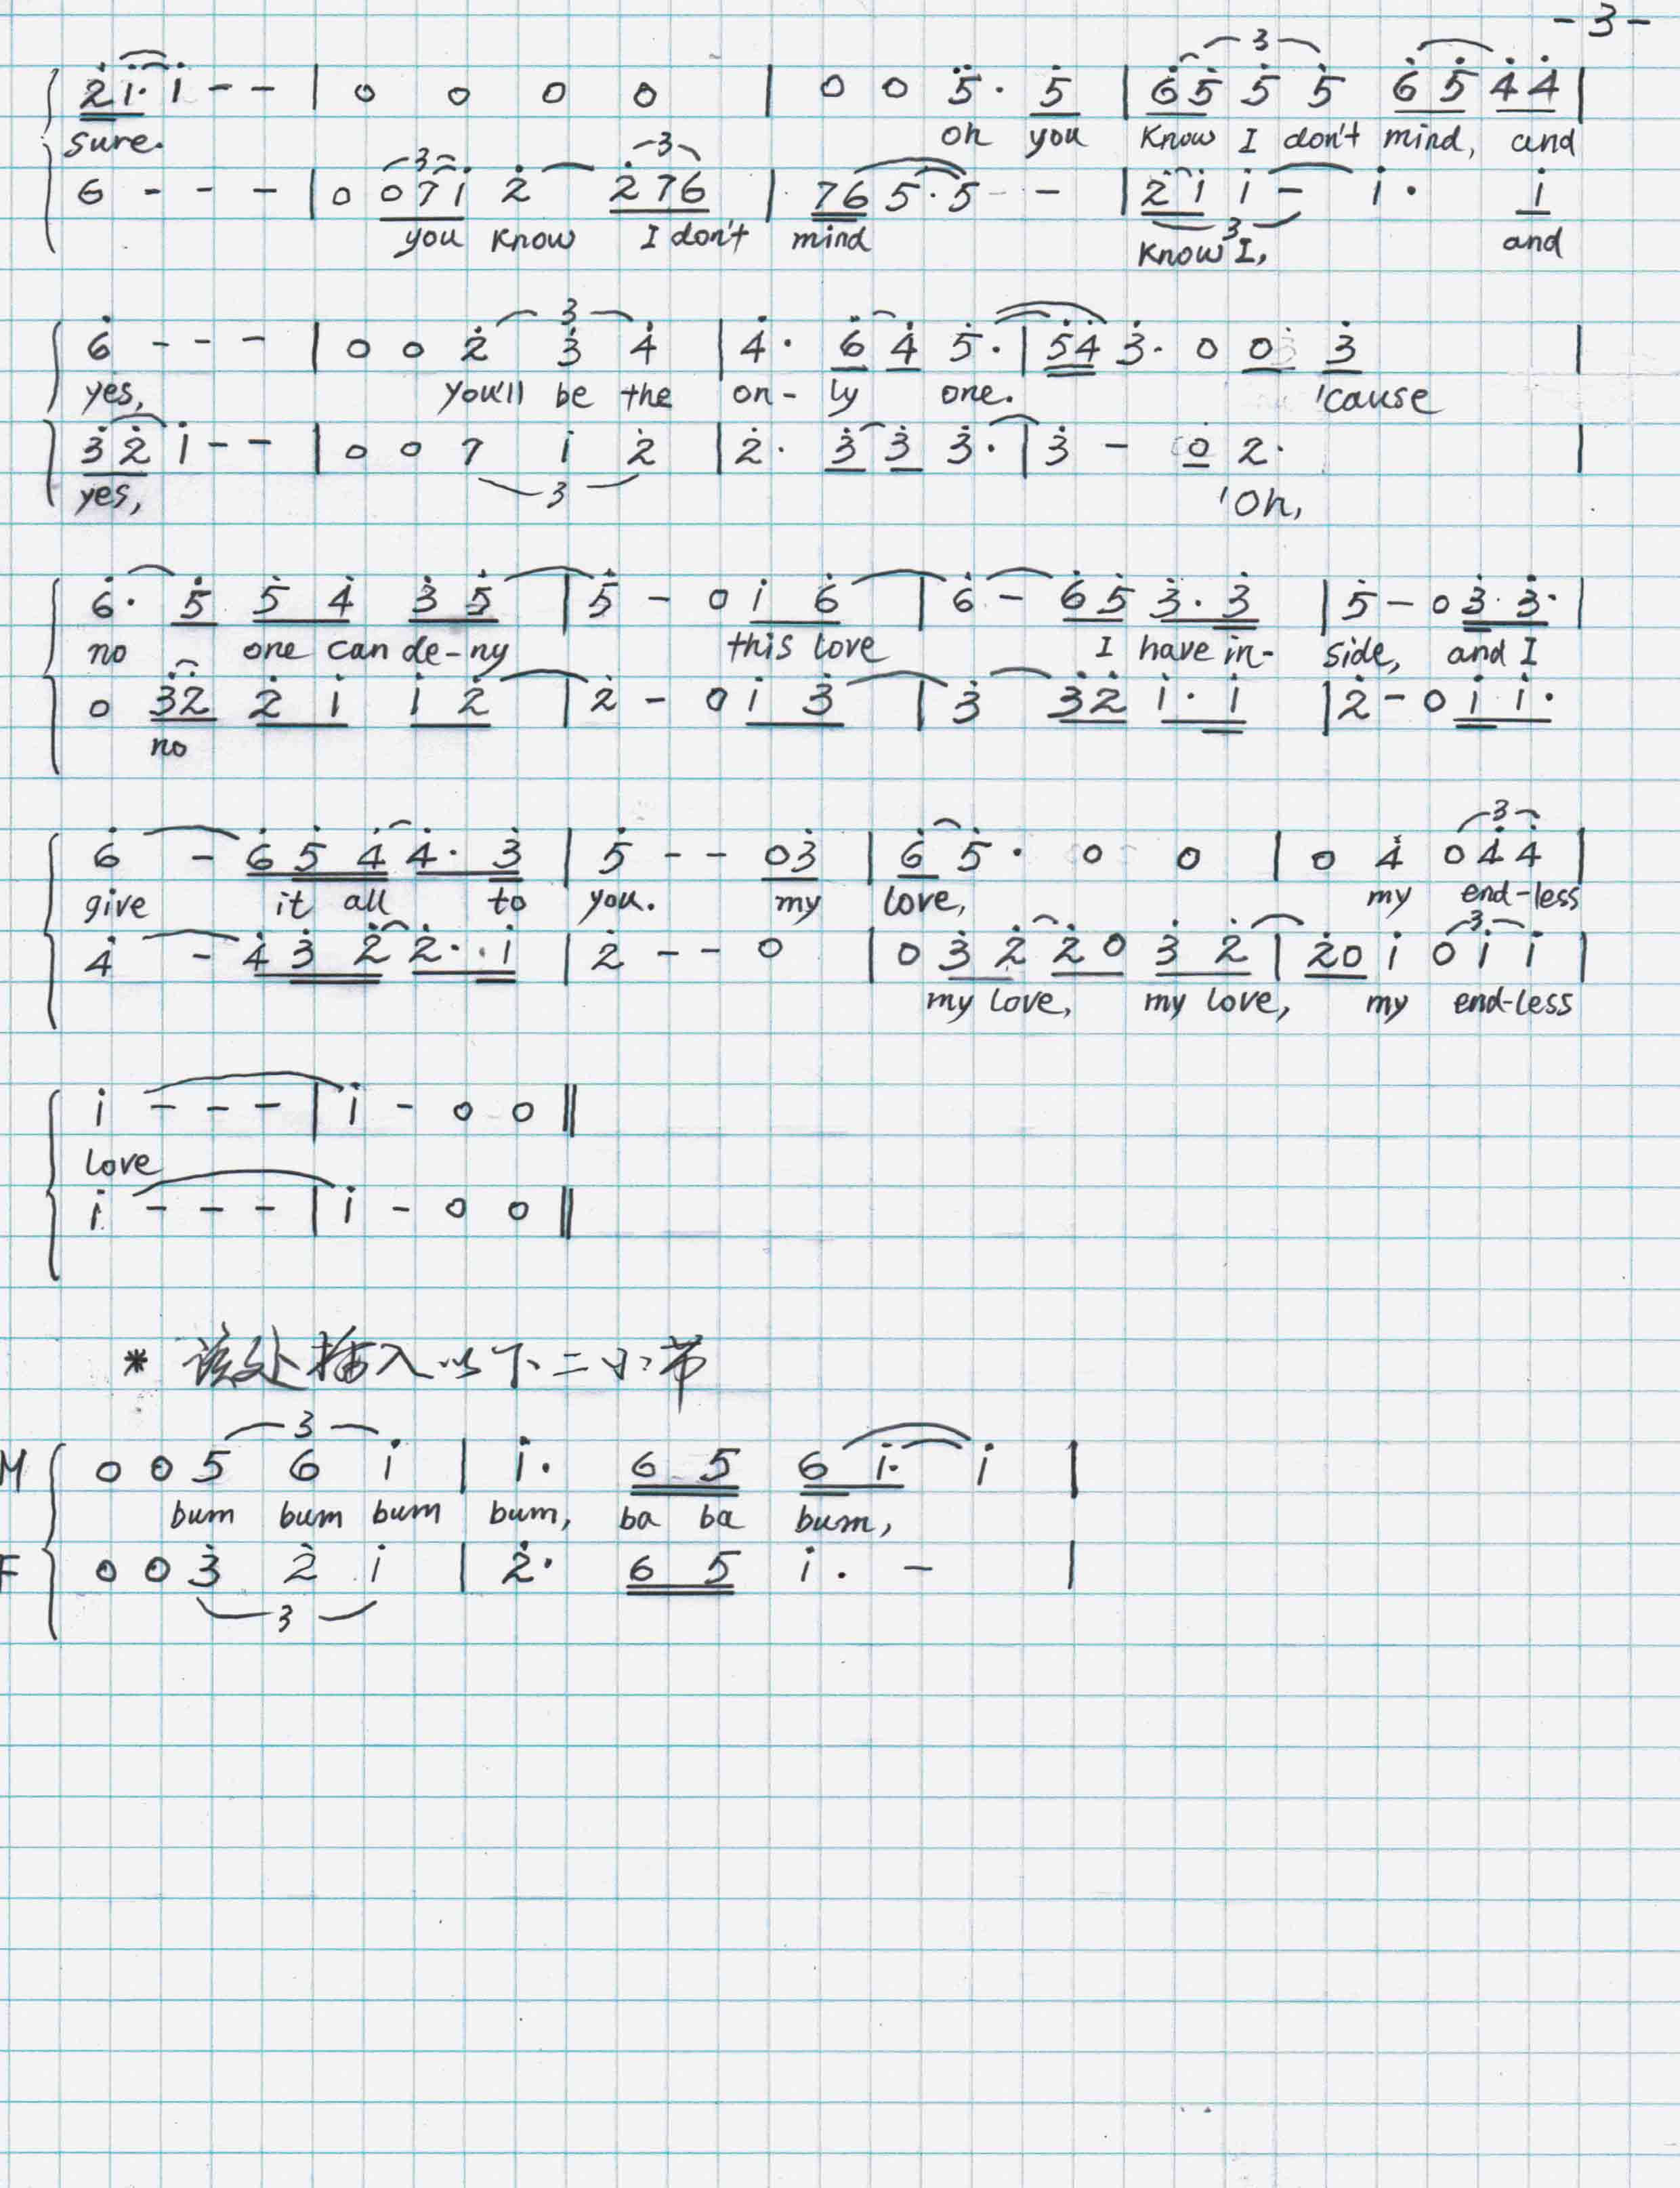 -3-
2 1· 1 - - | 0 0 0 0 | 0 0 5· 5 | 6 5 5 5 6 5 4 4 |
3
sure. oh you know I don't mind, and
6 - - - | 0 0 7 1 2 2 7 6 | 7 6 5· 5 - - | 2 1 1 - 1· 1
3 3 3
you know I don't mind know I, and
6 - - - | 0 0 2 3 4 | 4· 6 4 5· | 5 4 3· 0 0 3 |
3
yes, you'll be the on-ly one. 'cause
3 2 1 - - | 0 0 7 1 2 | 2· 3 3 3· | 3 - 0 2· |
3
yes, 'Oh,
6· 5 5 4 3 5 | 5 - 0 1 6 | 6 - 6 5 3· 3 | 5 - 0 3· 3· |
no one can de-ny this love I have in- side, and I
0 3 2 2 1 1 2 | 2 - 0 1 3 | 3 3 2 1· 1 | 2 - 0 1 1·
no
6 - 6 5 4 4· 3 | 5 - - 0 3 | 6 5· 0 0 | 0 4 0 4 4 |
3
give it all to you. my love, my end-less
4 - 4 3 2 2· 1 | 2 - - 0 | 0 3 2 2 0 3 2 | 2 0 1 0 1 1 |
3
my love, my love, my end-less
1 - - - | 1 - 0 0 ‖
love
1 - - - | 1 - 0 0 ‖
* 该处插入以下二小节
M 0 0 5 6 1 | 1· 6 5 6 1· 1 |
3
bum bum bum bum, ba ba bum,
F 0 0 3 2 1 | 2· 6 5 1· - |
3